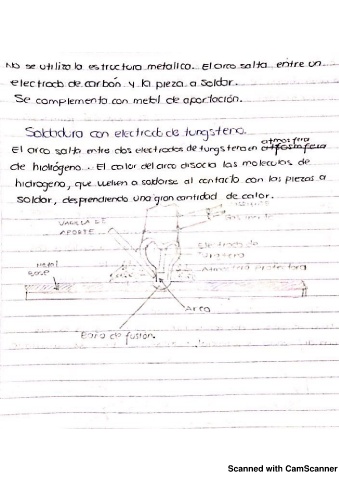 No se utiliza la estructura metalica. El arco salta entre un
electrodo de carbón y la pieza a soldar.
Se complementa con metal de aportación.
Soldadura con electrodo de tungsteno.
El arco salta entre dos electrodos de tungsteno en atmosfera
de hidrógeno. El calor del arco disocia las moleculas de
hidrogeno, que vuelven a soldarse al contacto con las piezas a
soldar, desprendiendo una gran cantidad de calor.
APORTE
Electrodo de
tungsteno
Atmosfera protectora
Metal
Base
Arco
Baño de fusión.
Scanned with CamScanner